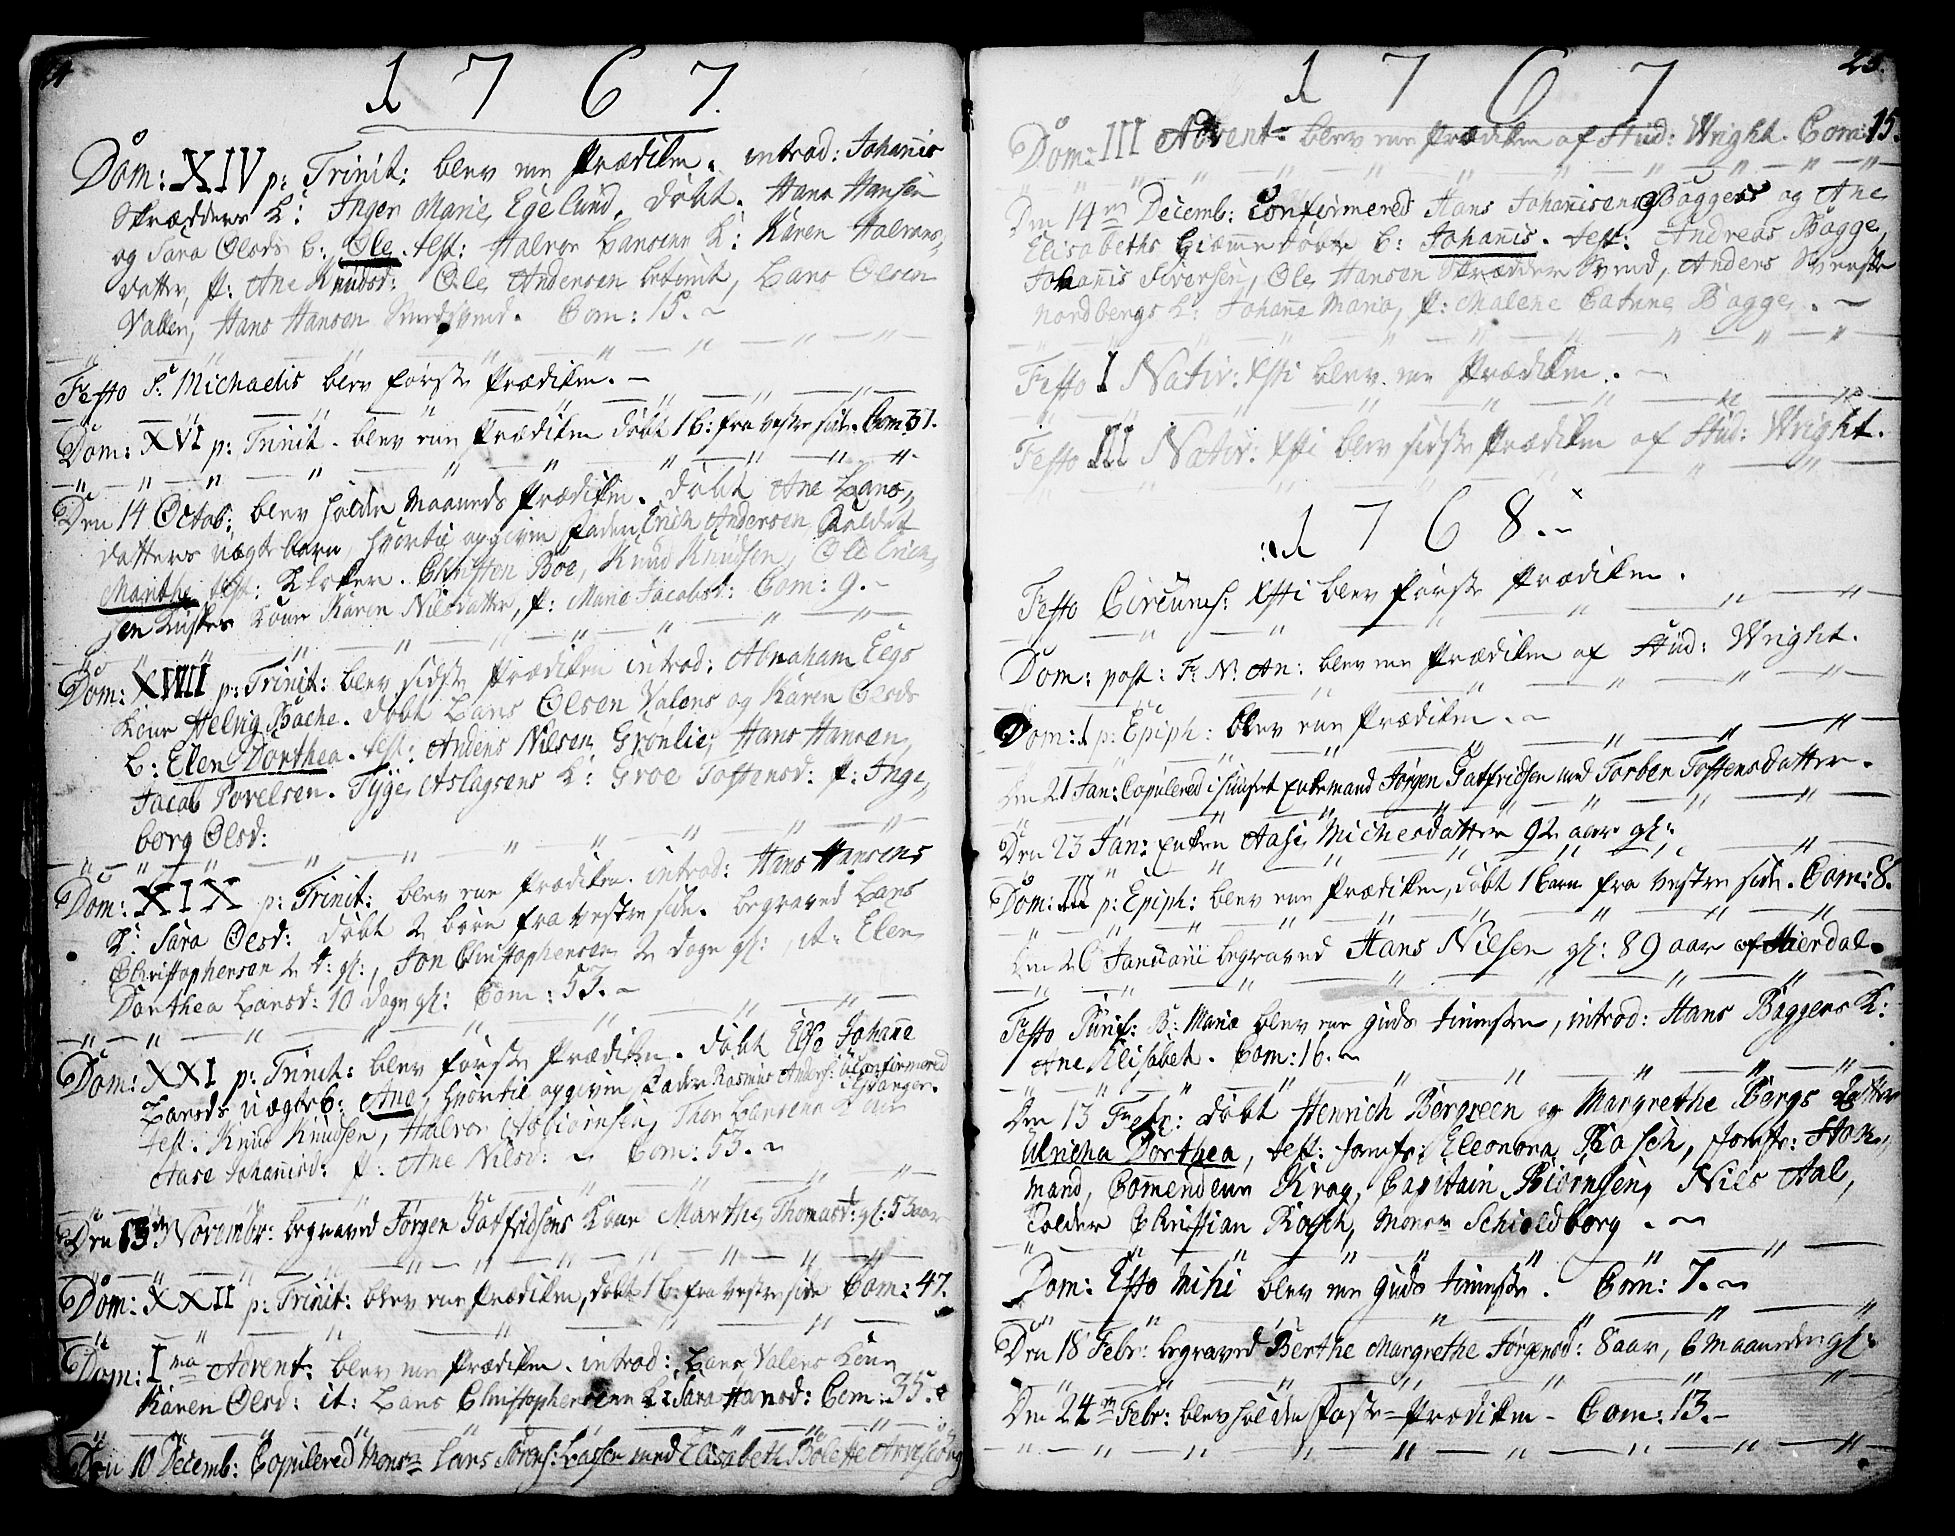 1767.
Dom: XIV p: Trinit: blev een Prædiken. introd: Johannis
Skrædders K: Inger Marie Egelund. døbt. Hans Hansen
og Sara Olsds b: Ole. test: Halvor Larsens K: Karen Halvors,,
datter, p: Ane Knudsd: Ole Andersen Lars Olsen
Vallen, Hans Hansen Com: 15.
Festo St. Michaelis blev første Prædiken.
Dom: XVI p: Trinit. blev een Prædiken døbt 1 b: fra vestre side. Com: 31.
Den 14 Octob: blev holden Maaneds Prædiken. døbt Ane Lars,,
datters uægte barn, hvortil opgiven Fader Erich Andersen, kaldet
Marthe test: Klokker. Christen Boe, Knud Knudsen, Ole Erich,,
sen Kone Karen Nilsdatter, p: Marie Jacobsd: Com: 9.
Dom: XVIII p: Trinit: blev sidste Prædiken introd: Abraham Eegs
Kone Helvig Bache. døbt Lars Olsen Valens og Karen Olsds
b: Elen Dorthea. test: Anders Nilsen Grønlie, Hans Hansen,
Jacob Povelsen. Tyge Aslagsens K: Groe Tostensd: p: Inge,,
borg Olsd:
Dom: XIX p: Trinit: blev een Prædiken. introd: Hans Hansens
K: Sara Olsd: døbt 2 børn fra vestre side. begraved Lars
Christophersen 2 gl:, Jon Christophersen 2 dage gl:, it: Elen
Dorthea Larsd: 10 dage gl: Com: 53.
Dom: XXI p: Trinit: blev første Prædiken. døbt Else Johanne
Larsds uægte b: Ane, hvortil opgiven Fader Rasmus Anders:
test: Knud Knudsen, Halvor Asbiørnsen, Thor Larsens Kone
Aase Johannisd: p: Ane Nilsd: Com: 53.
Den 13de Novembr: begraved Jørgen Gotfridsens Kone Marthe Thomasd: gl: 53 aar
Dom: XXII p: Trinit: blev een Prædiken, døbt 1 b: fra vestre side Com: 47.
Dom: Ima Advent: blev een Prædiken. introd: Lars Valens Kone
Karen Olsd: it: Lars Christophersens K: Sara Hansd: Com: 35.
Den 10 Decemb: Copulered Monsr Lars Sørens: Lassen med Elisabeth Bolette Arveschoug
1767 25.
Dom: III Advent blev een Prædiken af Stud: Wright. Com: 15.
Den 14 Decemb: Confirmered Hans Johannisen Bagges og Ane
Elisabeths hiemmedøbte b: Johannis. test: Andreas Bagge,
Johannis Siversen, Ole Hansen Skrædder Svend, Anders Svenske
Nordbergs K: Johanne Maria, p: Malene Catrine Bagge.
Festo I Nativ: Xsti blev een Prædiken.
Festo III Nativ: Xsti blev sidste Prædiken af Stud: Wright.
1768.
Festo Circumcs: Xsti blev første Prædiken.
Dom: post: F: N: An: blev een Prædiken af Stud: Wright.
Dom: 1 p: Epiph: blev een Prædiken.
Den 21 Jan: Copulered i huuset Enkemand Jørgen Gotfridsen med Torber Tostensdatter.
Den 23 Jan: Enken Aase Michelsdatter 92 aar gl:
Dom: III p: Epiph: blev een Prædiken, døbt 1 barn fra vestre side. Com: 8.
Den 26 Januarii begraved Hans Nilsen gl: 89 aar af Hierdal.
Festo Purif: B: Mariæ blev een Guds tieniste, introd: Hans Bagges K:
Ane Elisabet. Com: 16.
Den 13 Febr: døbt Henrich Bergreen og Margrethe Bergs datter
Ulricha Dorthea, test: Jomfr: Eleonora Rasch, Jomfr: Ham,,
mand, Comendeur Krag, Capitain Biørnsen, Nils Aal,
Tolder Christian Rasch, Monsr Schioldborg.
Dom: Esto Mihi blev een Guds tieniste. Com: 7.
Den 18 Febr: begraved Berthe Margrethe Jørgensd: 8 aar, 6 maaneder gl:
Den 24 Febr: blev holden Faste-Prædiken - Com: 13.